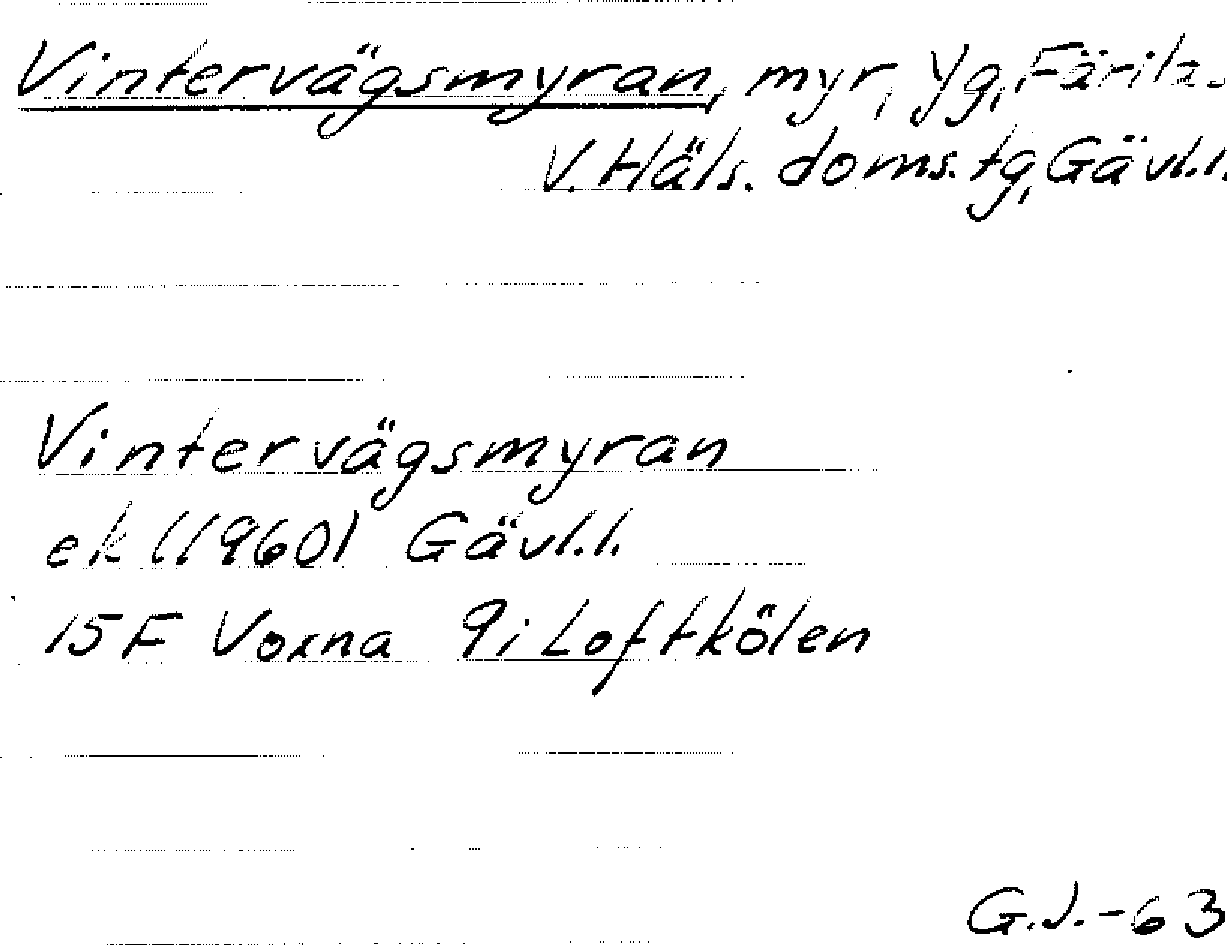 Vintervägsmyran, myr, Yg, Färila.
V. Häls. doms. tg, Gävl.l.
Vintervägsmyran
ek (1960) Gävl.l.
15F Voxna 9i Loftkölen
G.J.-63